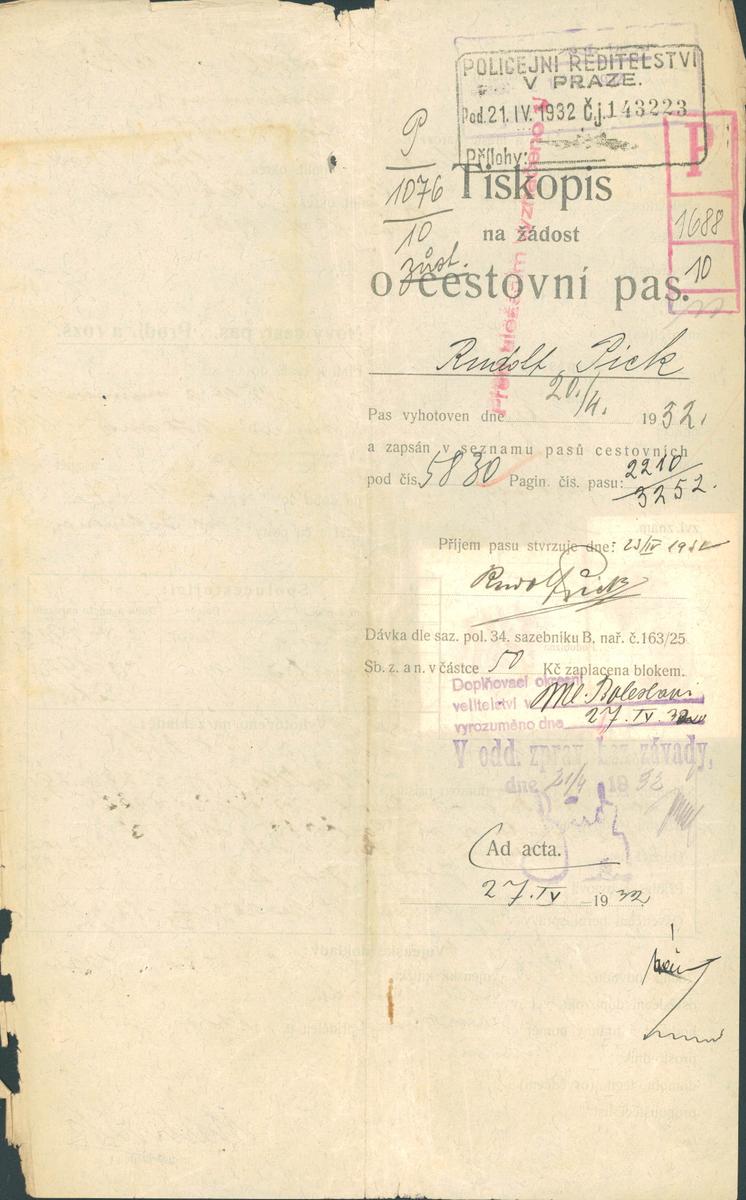 POLICEJNÍ ŘEDITELSTVÍ
V PRAZE.
Pod. 21. IV. 1932 Č.j. 143223
Přílohy:
P
1076
10
zůst.
P
1688
10
Tiskopis
na žádost
o cestovní pas.
Rudolf Pick
Pas vyhotoven dne 20./4. 1932.
a zapsán v seznamu pasů cestovních
pod čís. 5830 Pagin. čís. pasu: 2210/3252.
Příjem pasu stvrzuje dne: 23/IV 1932
Rudolf Pick
Dávka dle saz. pol. 34. sazebníku B, nař. č. 163/25
Sb. z. a n. v částce 50 Kč zaplacena blokem.
Doplňovací okresní
velitelství v Ml. Boleslavi
vyrozuměno dne 27. IV. 32
V odd. zprav. bez závady,
dne 21/4 1932
Ad acta.
27. IV 1932